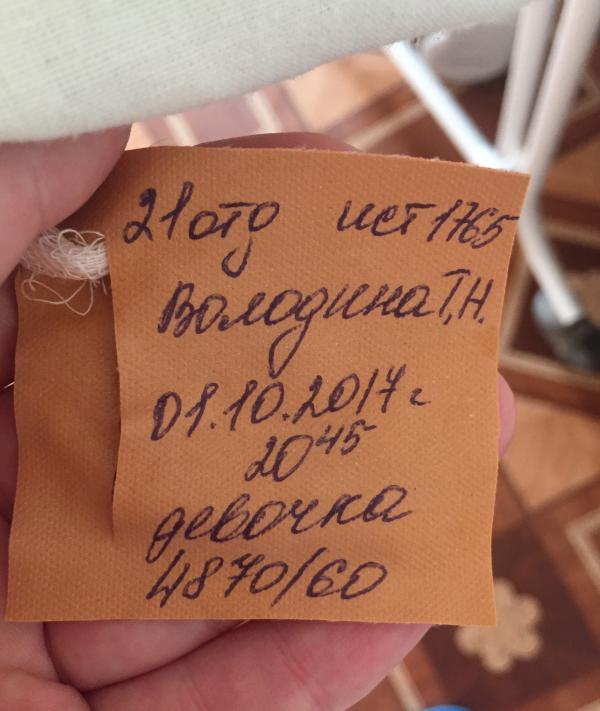 21 отд ист 1765
Володина Т.Н.
01.10.2017 г
20 45
девочка
4870/60